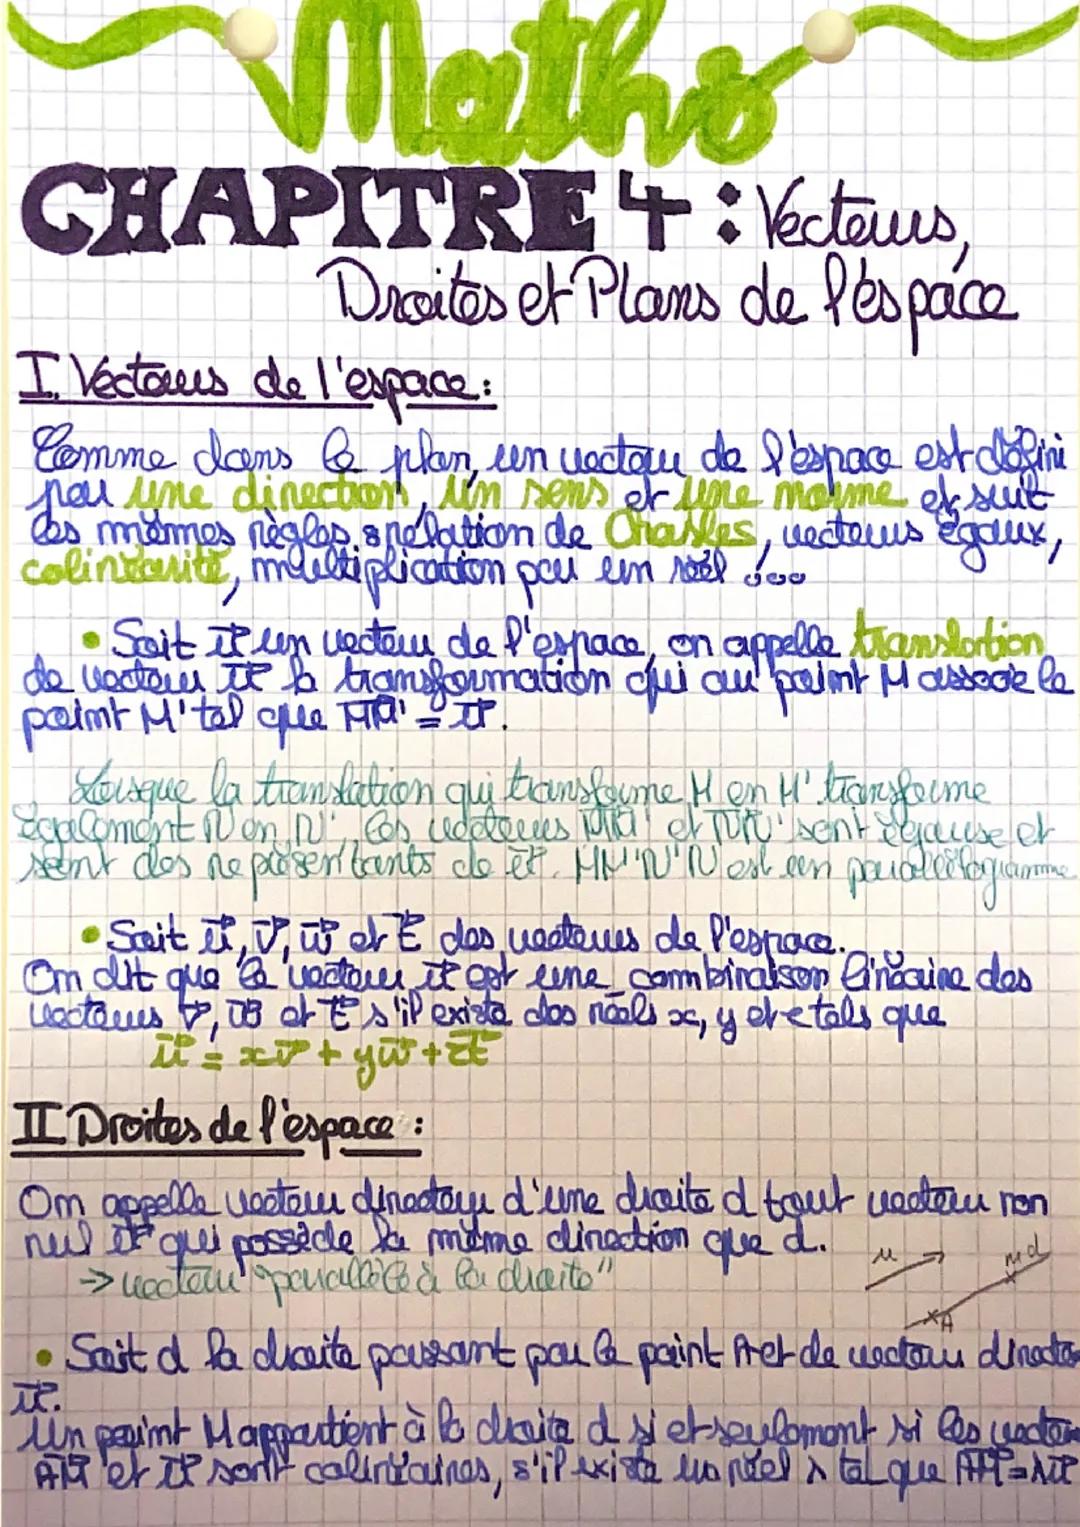 Maths
CHAPITRE 4 : Vecteurs,
Droites et Plans de l'espace
I. Vecteurs de l'espace :
Comme dans le plan, un vecteur de l'espace est défini
par une direction, un sens et une norme et suit
les mêmes règles : relation de Chasles, vecteurs égaux,
colinéarité, multiplication par un réel ...
• Soit u⃗ un vecteur de l'espace, on appelle translation
de vecteur u⃗ la transformation qui au point M associe le
point M' tel que MM'⃗ = u⃗.
Lorsque la translation qui transforme M en M' transforme
également N en N', les vecteurs MM'⃗ et NN'⃗ sont égaux et
sont des représentants de u⃗. MM'N'N est un parallélogramme
• Soit u⃗, v⃗, w⃗ et t⃗ des vecteurs de l'espace.
On dit que le vecteur u⃗ est une combinaison linéaire des
vecteurs v⃗, w⃗ et t⃗ s'il existe des réels x, y et z tels que
u⃗ = xv⃗ + yw⃗ + zt⃗
II Droites de l'espace :
On appelle vecteur directeur d'une droite d tout vecteur non
nul u⃗ qui possède la même direction que d.
→ vecteur "parallèle à la droite"
u
M d
A
• Soit d la droite passant par le point A et de vecteur directeu
u⃗.
Un point M appartient à la droite d si et seulement si les vecteu
AM⃗ et u⃗ sont colinéaires, s'il existe un réel λ tel que AM⃗ = λu⃗